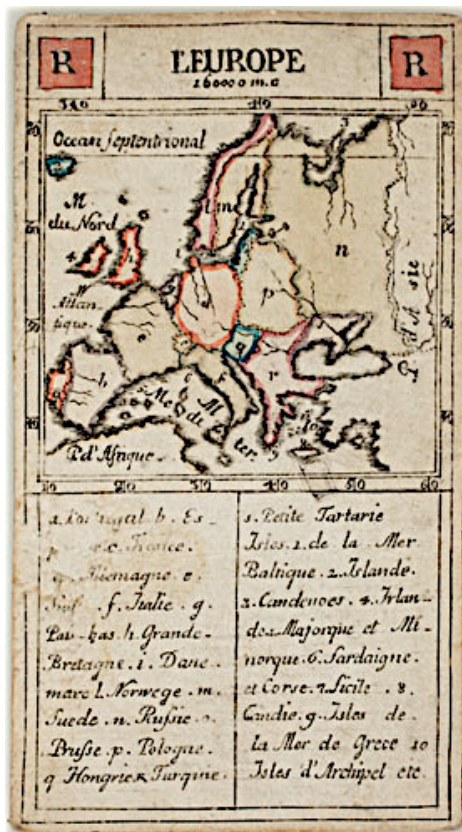 R L'EUROPE R
160000 m.c
340 410 90
Ocean septentrional
M.
du Nord
M
Atlan-
tique
n
l m
p
q
r
h
P. d'Asie
Me di ter.
M
P. d'Afrique
10 210 310 410 510 610
a. Portugal b. Es-
c. France.
Allemagne e.
f. Italie g.
Pai-bas h. Grande-
Bretagne. i. Dane
marc l. Norwege. m.
Suede. n. Russie
Prusse. p. Pologne.
q Hongrie R Turquie.
s. Petite Tartarie
Isles. 1. de la Mer
Baltique. 2. Islande.
3. Candenoes. 4. Irlan-
de Majorque et Mi-
norque. 6. Sardaigne.
et Corse. 7. Sicile. 8.
Candie. 9. Isles de
la Mer de Grece 10
Isles d'Archipel etc.